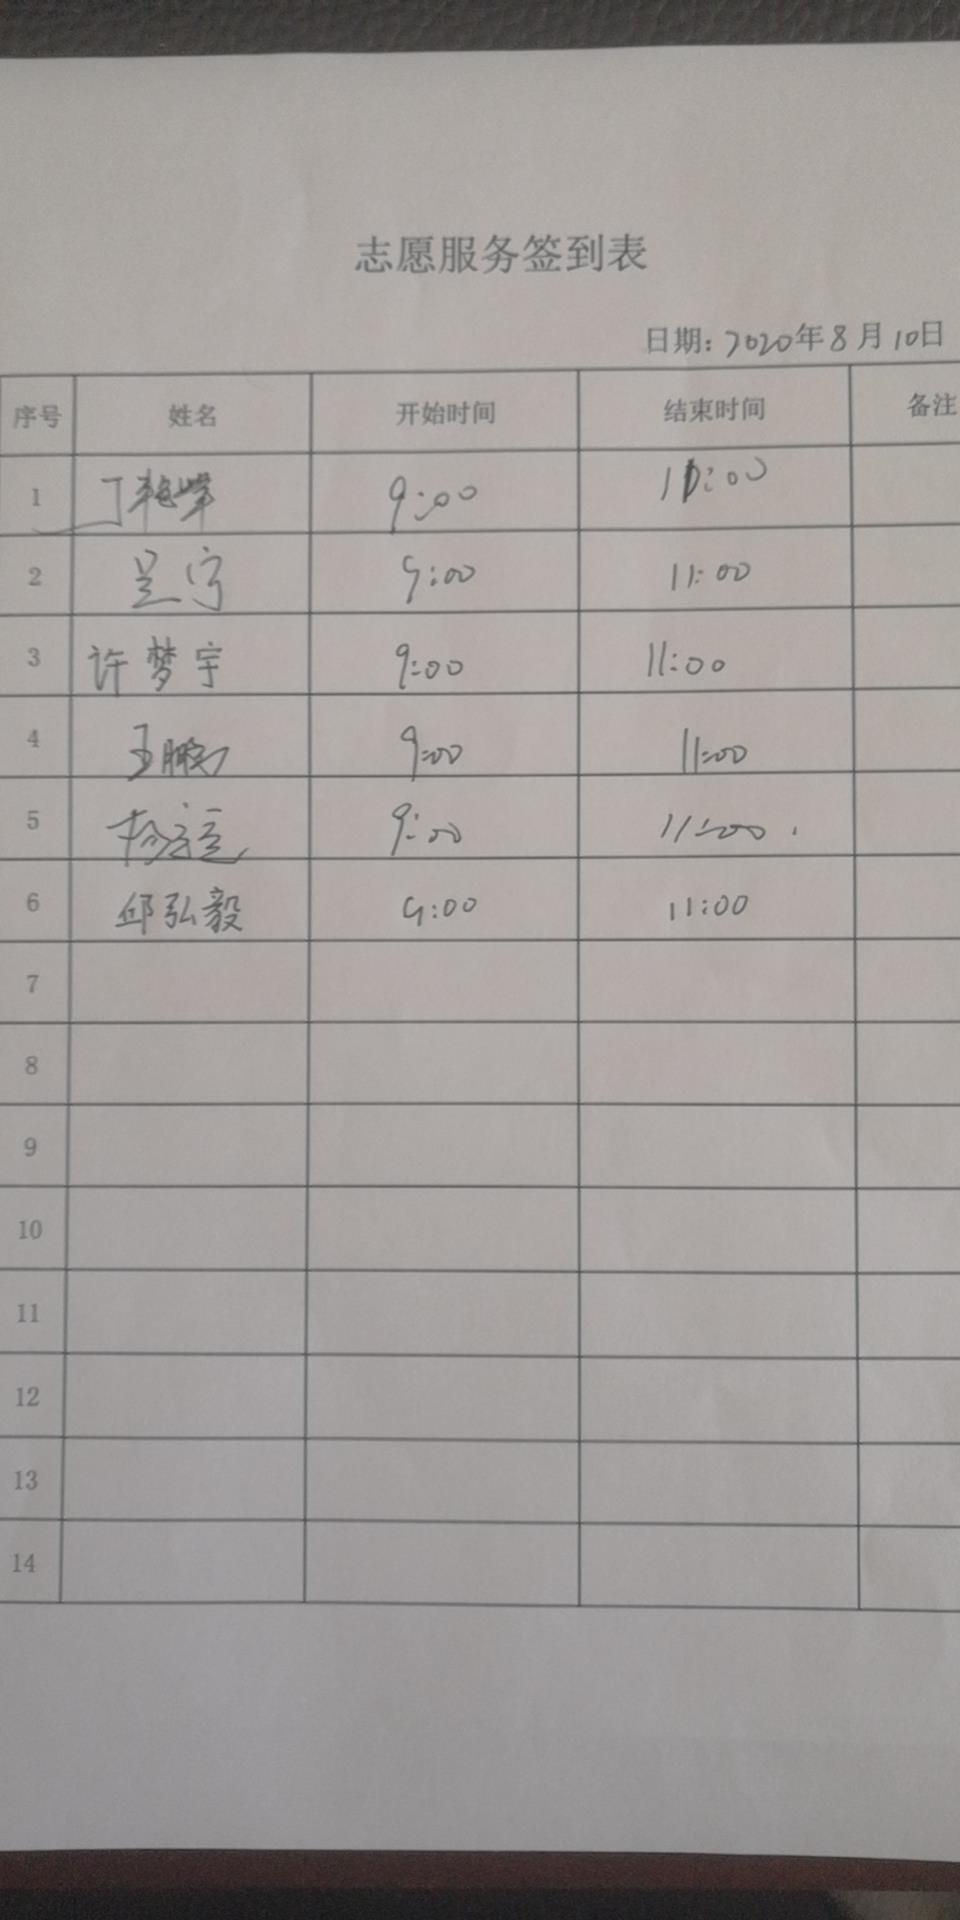 志愿服务签到表
日期: 2020年8月10日
序号 姓名 开始时间 结束时间 备注
1 丁艳 9:00 11:00
2 吴宁 9:00 11:00
3 许梦宇 9:00 11:00
4 王鹏 9:00 11:00
5 杨 9:00 11:00
6 邱弘毅 9:00 11:00
7
8
9
10
11
12
13
14